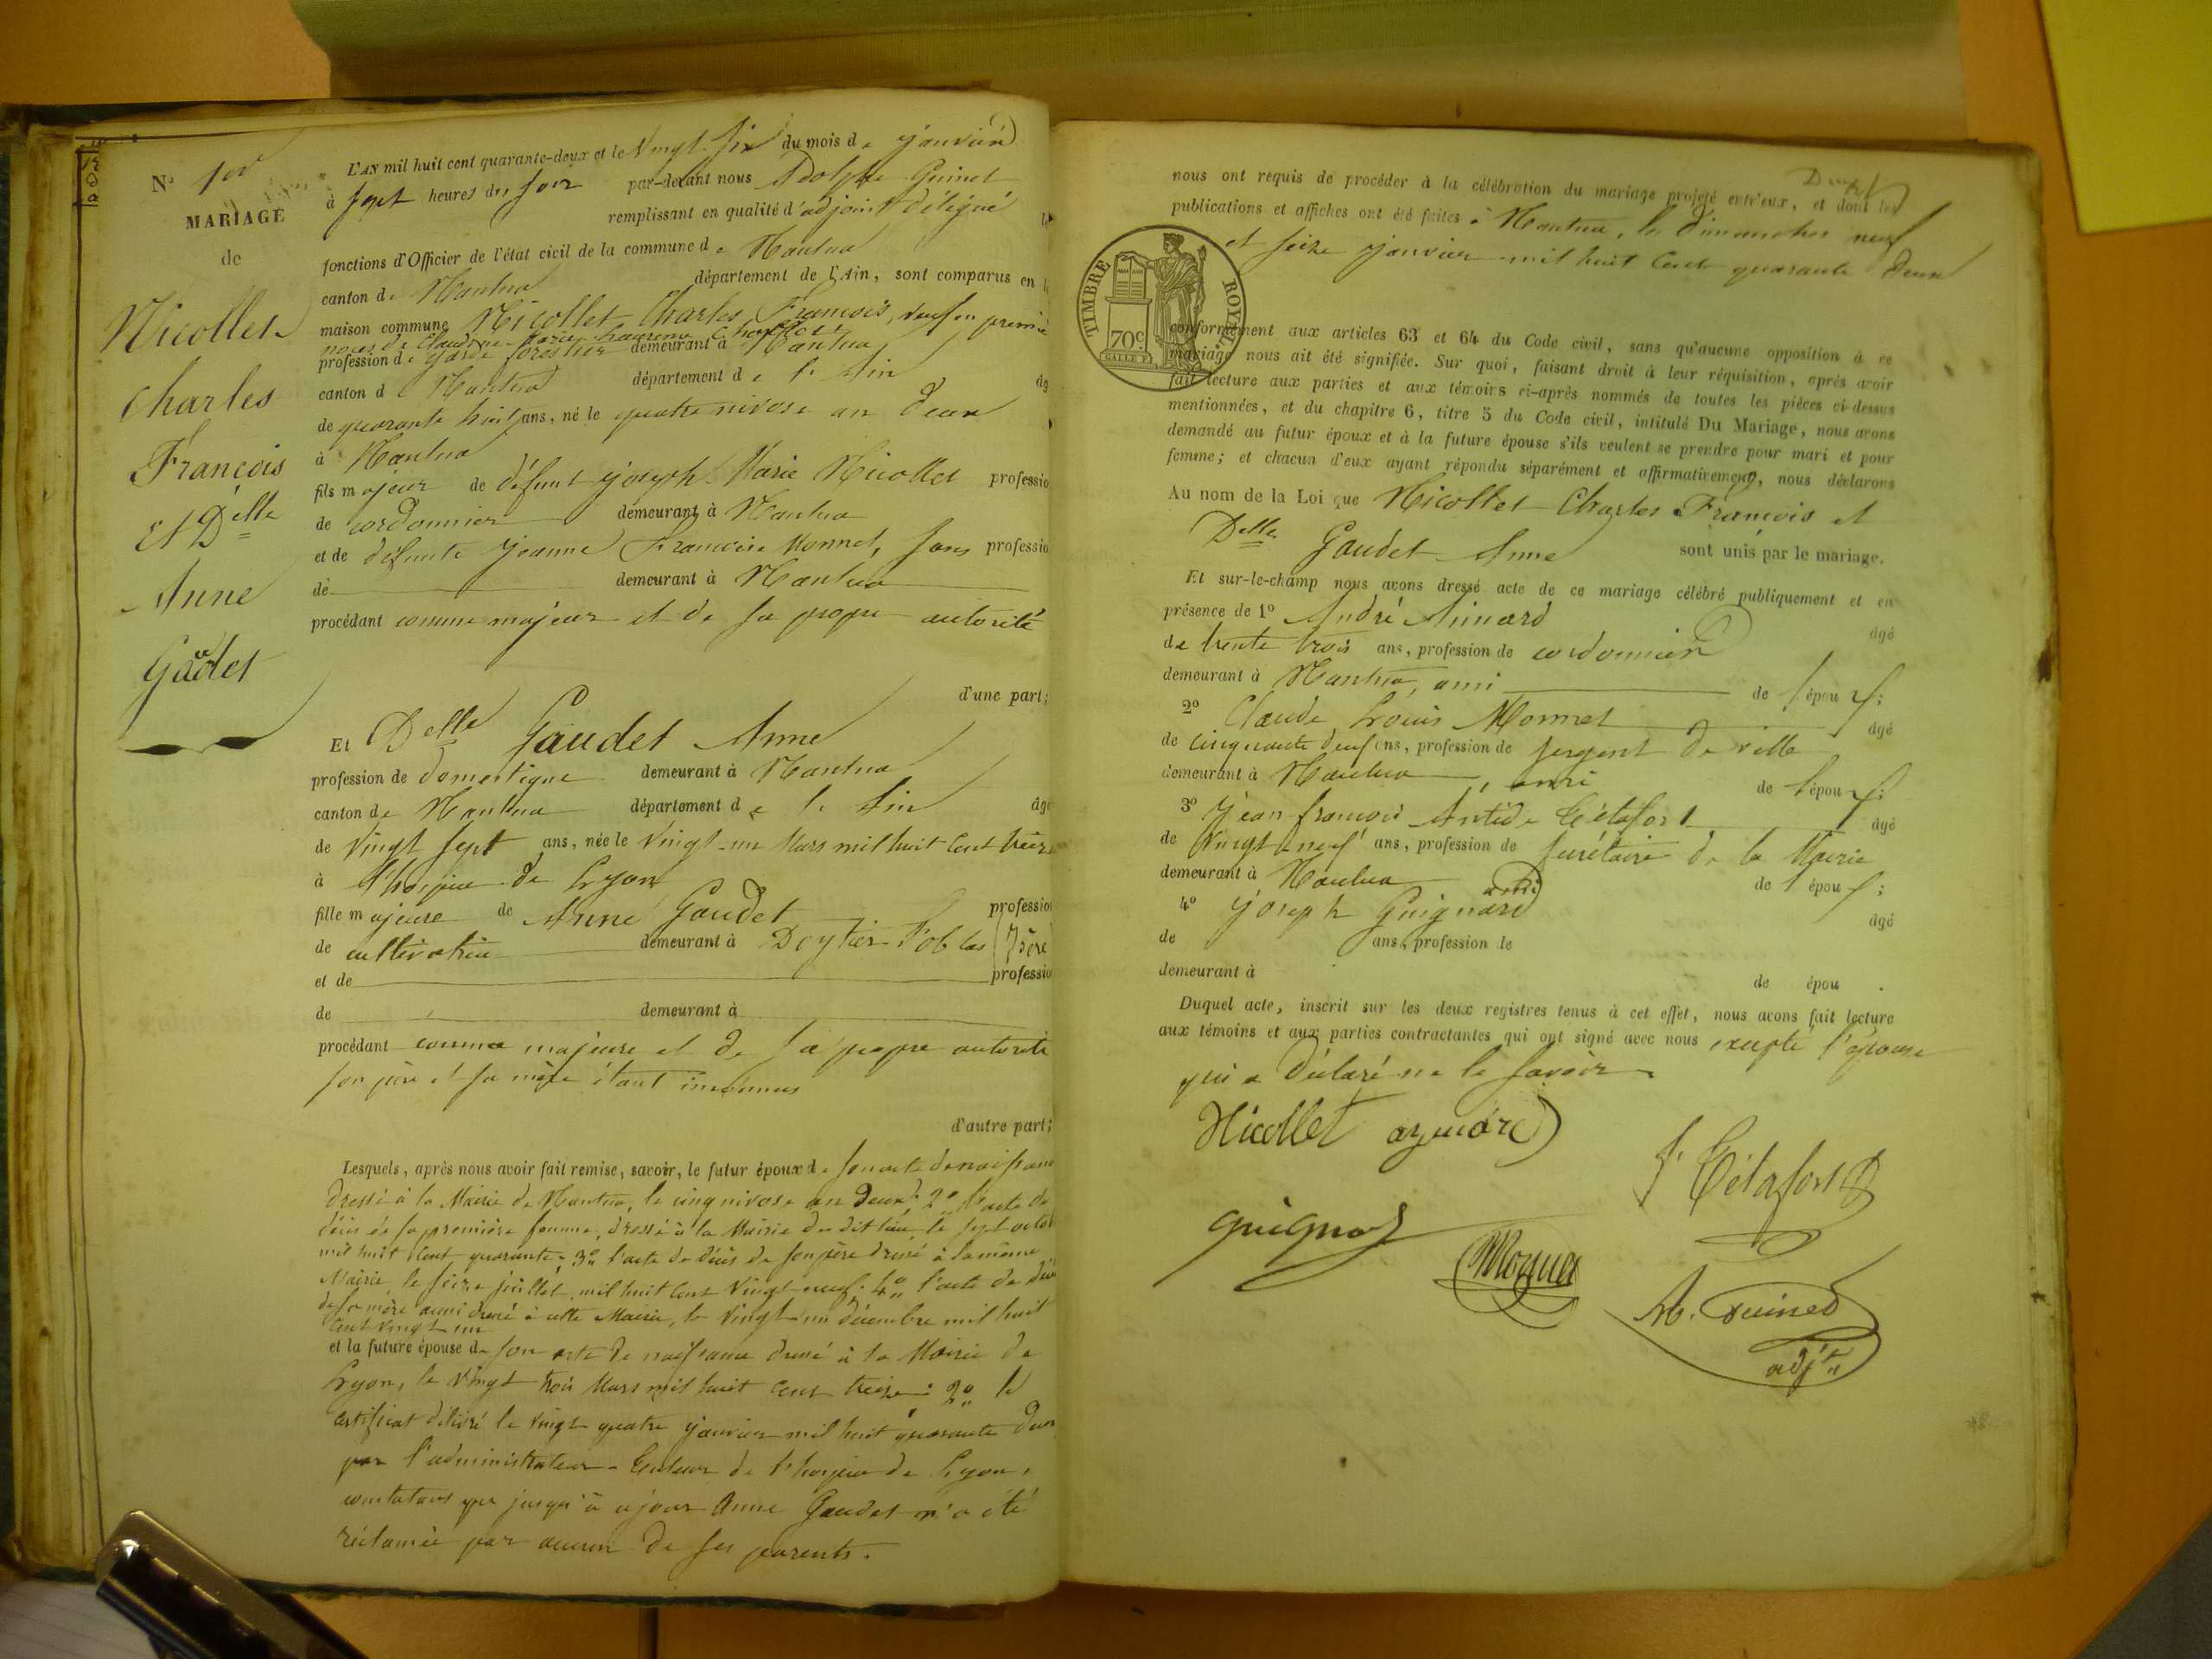 N° 1er
MARIAGE
de
Nicollet
Charles
François
et Delle
Anne
Gaudet
L'AN mil huit cent quarante-deux et le vingt six du mois de janvier
à sept heures du soir par-devant nous Adolphe Guinet
remplissant en qualité d'adjoint délégué
fonctions d'Officier de l'état civil de la commune de Nantua
canton de Nantua département de l'Ain, sont comparus en
maison commune Nicollet Charles François, veuf en premiè
noces de Claudine Marie
profession de garde forestier demeurant à Nantua
canton d Nantua département de l'Ain âg
de quarante huit ans, né le quatre nivose an deux
à Nantua
fils majeur de défunt joseph Marie Nicollet professio
de cordonnier demeurant à Nantua
et de défunte jeanne Françoise Monnet, sans professio
de demeurant à Nantua
procédant comme majeur et de sa propre autorité
d'une part;
Et Delle Gaudet Anne
profession de domestique demeurant à Nantua
canton de Nantua département de l'Ain âgé
de vingt sept ans, née le vingt-un Mars mil huit cent treize
à l'hospice de Lyon
fille majeure de Anne Gaudet profession
de cultivatrice demeurant à (Isère)
et de professio
de demeurant à
procédant comme majeure et de sa propre autorité
son père et sa mère étant inconnus
d'autre part;
Lesquels, après nous avoir fait remise, savoir, le futur époux de son acte de naissance
dressé à la Mairie de Nantua, le cinq nivose an deux; 2° l'acte de
décès de sa première femme, dressé à la Mairie du dit lieu, le sept octob
mil huit cent quarante; 3° l'acte de décès de son père dressé à la même
Mairie le seize juillet mil huit cent vingt neuf; 4° l'acte de décè
de sa mère aussi dressé à cette Mairie, le vingt un décembre mil huit
cent vingt un
et la future épouse de son acte de naissance dressé à la Mairie de
Lyon, le vingt trois Mars mil huit cent treize; 2° le
certificat délivré le vingt quatre janvier mil huit quarante deux
par l'administrateur-tuteur de l'hospice de Lyon,
constatant que jusqu'à ce jour Anne Gaudet n'a été
réclamée par aucun de ses parents.
nous ont requis de procéder à la célébration du mariage projeté entr'eux, et dont les Deux
publications et affiches ont été faites à Nantua, les dimanches neuf
et seize janvier mil huit cent quarante deux
TIMBRE ROYAL
70c
conformément aux articles 63 et 64 du Code civil, sans qu'aucune opposition à ce
mariage nous ait été signifiée. Sur quoi, faisant droit à leur réquisition, après avoir
fait lecture aux parties et aux témoins ci-après nommés de toutes les pièces ci-dessus
mentionnées, et du chapitre 6, titre 5 du Code civil, intitulé Du Mariage, nous avons
demandé au futur époux et à la future épouse s'ils veulent se prendre pour mari et pour
femme; et chacun d'eux ayant répondu séparément et affirmativement, nous déclarons
Au nom de la Loi que Nicollet Charles François et
Delle Gaudet Anne sont unis par le mariage.
Et sur-le-champ nous avons dressé acte de ce mariage célébré publiquement et en
présence de 1° André Aimard âgé
de trente trois ans, profession de cordonnier
demeurant à Nantua, ami de l'épou x;
2° Claude Louis Monnet âgé
de cinquante deux ans, profession de sergent de ville
demeurant à Nantua, ami de l'épou x;
3° jean françois Antide Tétafort âgé
de vingt neuf ans, profession de secrétaire de la Mairie
demeurant à Nantua ami de l'épou x;
4° joseph Guignard âgé
de ans, profession le
demeurant à de épou .
Duquel acte, inscrit sur les deux registres tenus à cet effet, nous avons fait lecture
aux témoins et aux parties contractantes qui ont signé avec nous excepté l'épouse
qui a déclaré ne le savoir.
Nicollet aymard
Tétafort
Guignard
Monnet
Guinet
adjt